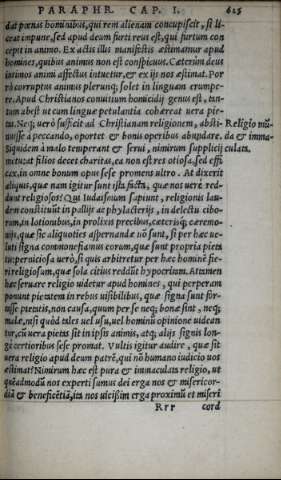 PARAPHR. CAP. I. 625
dat pœnas hominibus, qui rem alienam concupiscit, si li-
ceat impune, sed apud deum furti reus est, qui furtum con
cepit in animo. Ex actis illus manifestis æstimamur apud
homines, quibus animus non est conspicuus. Cæterùm deus
intimos animi affectus intuetur, & ex ijs nos æstimat. Por
rò corruptus animus plerunq; solet in linguam erumpe-
re. Apud Christianos conuitium homicidij genus est, tan-
tum abest ut cum linguæ petulantia cohæreat uera pie-
tas. Neq; uerò sufficit ad Christianam religionem, absti-
Religio mū-
nuisse à peccando, oportet & bonis operibus abundare.
da & imma-
Siquidem à malo temperant & serui, nimirum supplicij
culata.
metu: at filios decet charitas, ea non est res otiosa. sed effi
cax, in omne bonum opus sese promens ultro. At dixerit
aliquis, quæ nam igitur sunt ista facta, quæ nos uerè red-
dunt religiosos? Qui Iudaismum sapiunt, religionis lau-
dem constituūt in pallijs ac phylacterijs, in delectu cibo-
rum, in lotionibus, in prolixis precibus, cæterisq; ceremo-
nijs, quæ sic aliquoties aspernandæ nō sunt, si per hæc ue-
luti signa commonefiamus eorum, quæ sunt propria pieta
tis: perniciosa uerò, si quis arbitretur per hæc hominē fie-
ri religiosum, quæ sola citius reddūt hypocritam. Attamen
hæc seruare religio uidetur apud homines, qui perperam
ponunt pietatem in rebus uisibilibus, quæ signa sunt for-
mæ pietatis, non causa, quum per se neq; bonæ sint, neq;
malæ, nisi quòd tales uel usu, uel hominū opinione uidean
tur, cū uera pietas sit in ipsis animis, atq; alijs signis lon-
gè certioribus sese promat. Vultis igitur audire, quæ sit
uera religio apud deum patrē, qui nō humano iudicio uos
æstimat? Nimirum hæc est pura & immaculata religio, ut
quēadmodū nos experti sumus dei erga nos & misericor-
diā & beneficētiā, ita nos uicissim erga proximū et miseri
Rrr cord